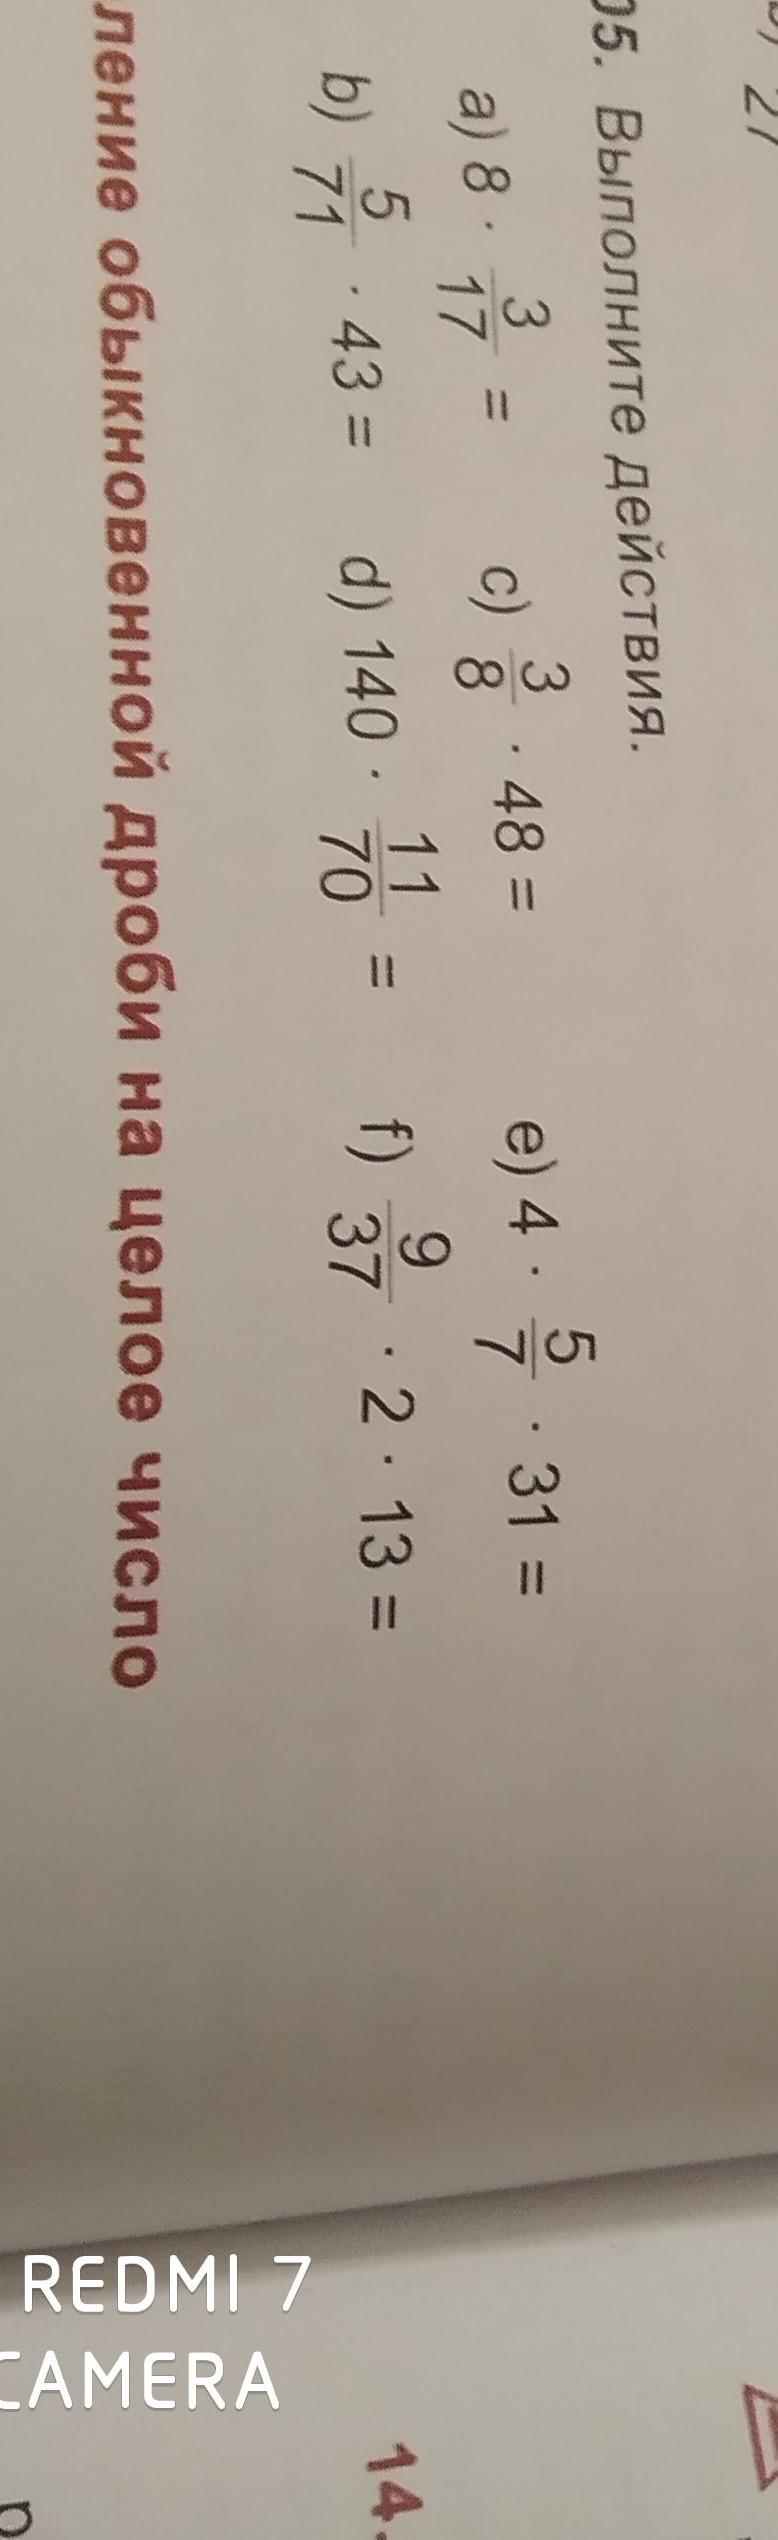 27
05. Выполните действия.
a) 8 · 3/17 = c) 3/8 · 48 = e) 4 · 5/7 · 31 =
b) 5/71 · 43 = d) 140 · 11/70 = f) 9/37 · 2 · 13 =
ление обыкновенной дроби на целое число
14.
REDMI 7
CAMERA